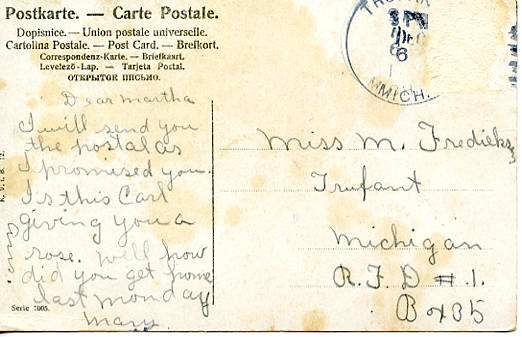 Postkarte. — Carte Postale.
Dopisnice. — Union postale universelle.
Cartolina Postale. — Post Card. — Brefkort.
Correspondenz-Karte. — Briefkaart.
Levelező-Lap. — Tarjeta Postal.
ОТКРЫТОЕ ПИСЬМО.
Dear Martha
I will send you
the postal as
I promised you.
Is this Carl
giving you a
rose. Well how
did you get home
last monday
Mary.
Ans.
Serie 1005.
MICH.
Miss M. Frederiksen
Trufant
Michigan
R.F.D #.1.
Box 35